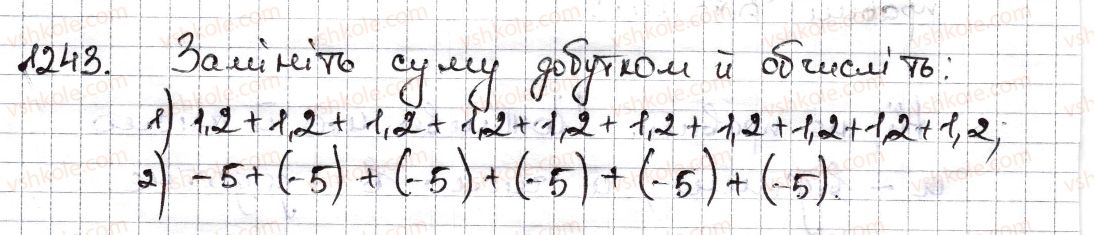 1243. Замініть суму добутком й обчисліть:
1) 1,2 + 1,2 + 1,2 + 1,2 + 1,2 + 1,2 + 1,2 + 1,2 + 1,2 + 1,2;
2) - 5 + (- 5) + (- 5) + (- 5) + (- 5) + (- 5).